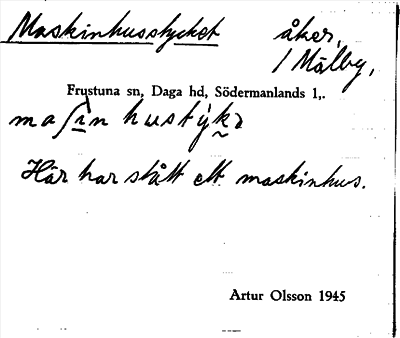 Maskinhusstycket åker,
/ Mälby,
Frustuna sn, Daga hd, Södermanlands l,.
maʃìn hustýkə
Här har stått ett maskinhus.
Artur Olsson 1945